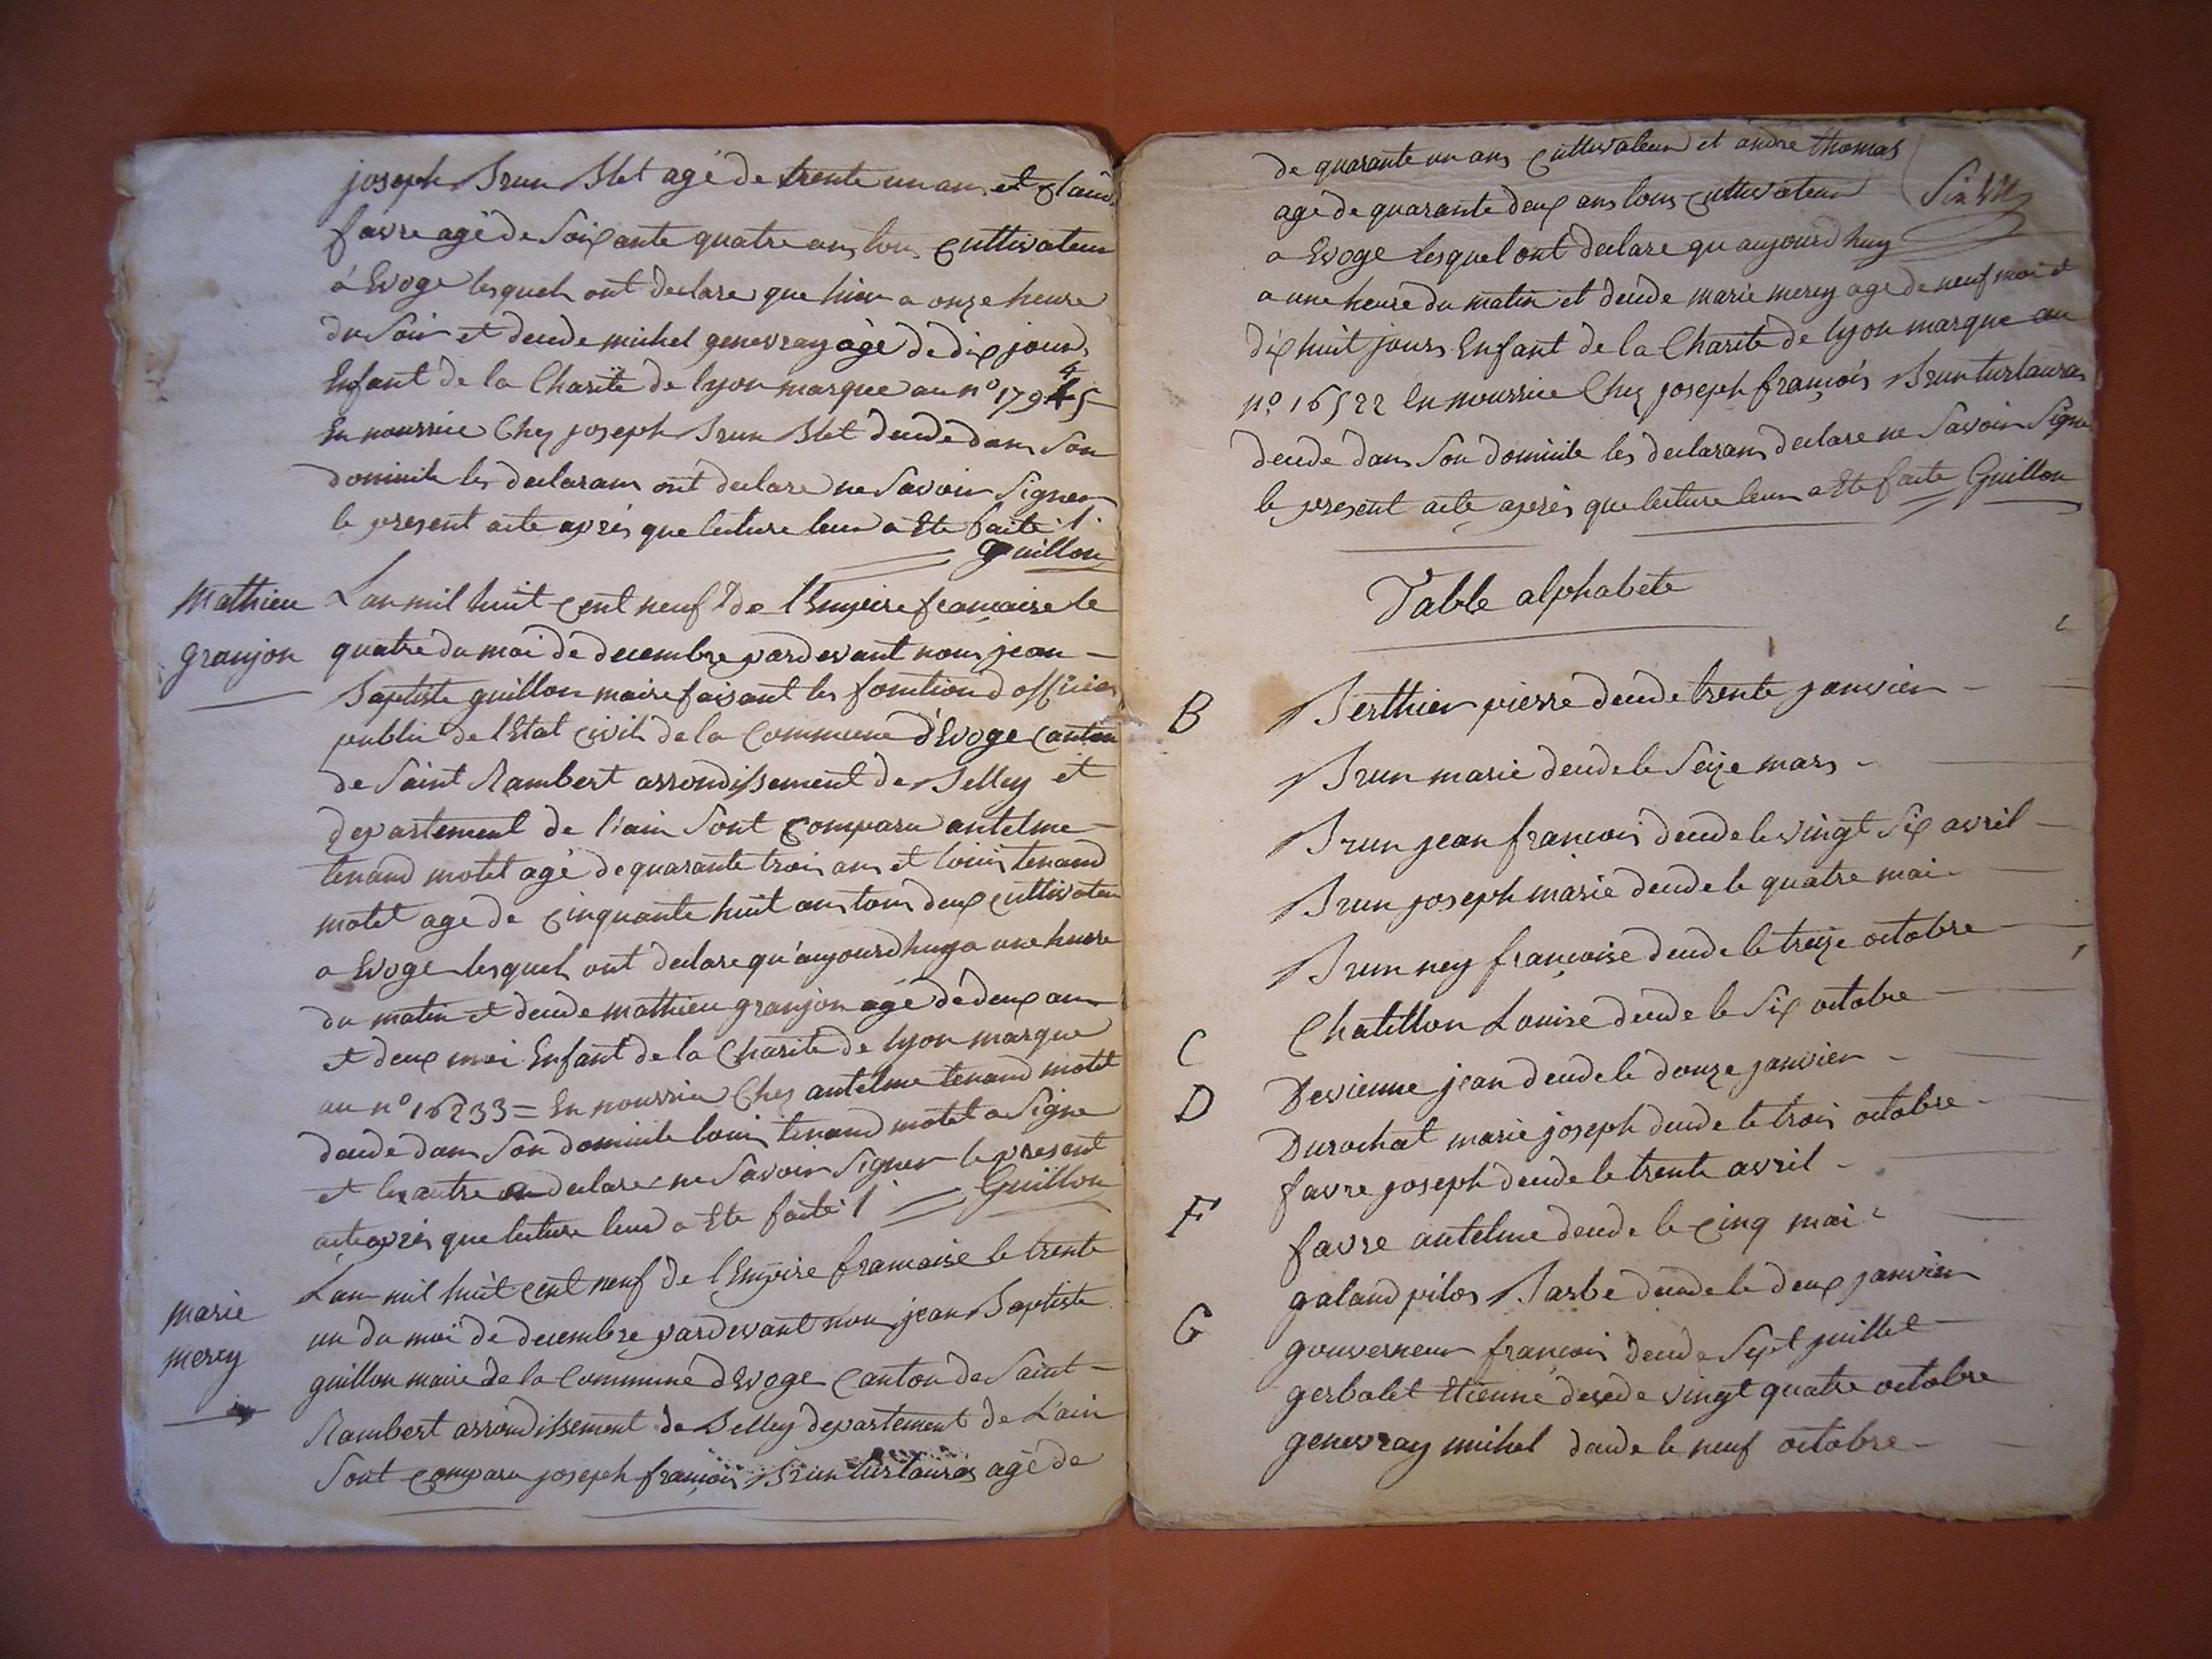 joseph Brun Blet agé de trente un ans et Claud
favre agé de Soixante quatre ans tous Cultivateur
á Evoge lesquels ont declare que hier a onze heure
du Soir et decede michel genevray agé de dix jours
Enfant de la Charité de lyon marque au n°
En nourrice Chez joseph Brun Blet decede dans Son
domicile les declarans ont declare ne Savoir Signer
le present acte aprés que lecture leur a Ete faite
Guillon
Mathieu
granjon
L'an mil huit Cent neuf de l'Empire francaise le
quatre du moi de decembre pardevant nous jean
Baptiste guillon maire faisant les fonction d'officier
public de l'Etat Civil de la Commune d'Evoge Canton
de Saint Rambert arrondissement de Belley et
departement de l'ain Sont Comparu antelme
tenand motet agé de quarante trois ans et louis tenand
motet age de Cinquante huit ans tous deux Cultivateur
a Evoge lesquels ont declare qu'aujourdhuy a une heure
du matin et decede mathieu granjon agé de deux ans
et deux moi Enfant de la Charité de lyon marque
au n° 16233 = En nourrice Chez antelme tenand motet
decede dans Son domicile louis tenand motet a Signe
et lautre a declare ne Savoir Signer le present
acte aprés que lecture leur a Ete faite Guillon
marie
mercy
L'an mil huit Cent neuf de l'Empire francaise le trente
un du moi de decembre pardevant nous jean Baptiste
guillon maire de la Commune d'Evoge Canton de Saint
Rambert arrondissement de Belley departement de L'ain
Sont Comparu joseph françois Brun turlauras agé de
de quarante un ans Cultivateur et andre thomas
age de quarante deux ans tous Cultivateur
a Evoge lesquel ont declare qu aujourdhuy
a une heure du matin et decede marie mercy age de neuf moi et
dix huit jours Enfant de la Charité de lyon marque au
n° 16522 En nourrice Chez joseph françois Brun turlauras
decede dans Son domicile les declarans declare ne Savoir Signe
le present acte après que lecture leur a Ete faite Guillon
Table alphabete
B Berthier pierre decede trente janvier
Brun marie decede le Seize mars
Brun jean francois decede le vingt Six avril
Brun joseph marie decede le quatre mai
Brun ney françoise decede le treize octobre
C Chatillon Louise decede le Six octobre
D Devienne jean decede le douze janvier
Durochat marie joseph decede le trois octobre
F favre joseph decede le trente avril
favre antelme decede le Cinq mai
G galand pilos Barbe decede le deux janvier
gouverneur françois decede Sept juillet
gerbolet Etienne decede vingt quatre octobre
genevray michel decede le neuf octobre